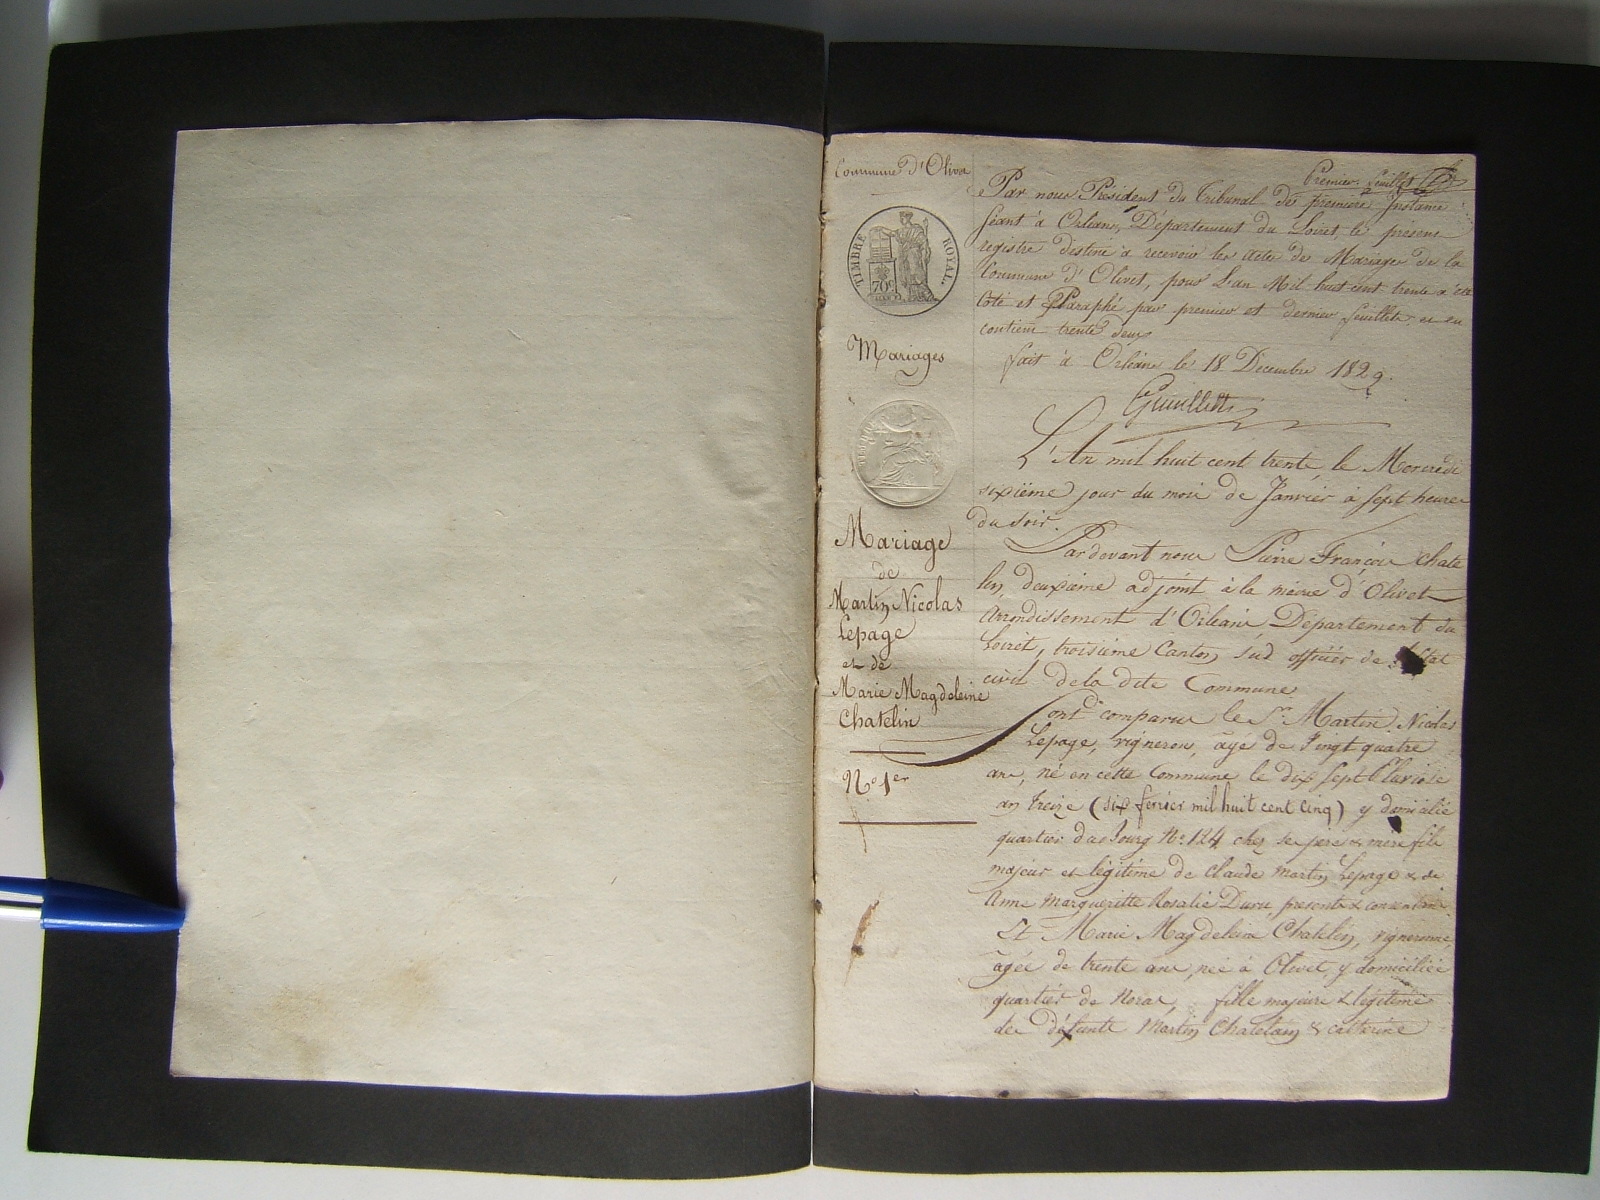 Commune d'Olivet
TIMBRE ROYAL.
70c
Mariages
Mariage
de
Martin Nicolas
Lepage
et de
Marie Magdeleine
Chatelin
No 1er
Premier feuillet
Par nous Président du Tribunal de première Instance
séant à Orléans, Département du Loiret, le présent
registre destiné à recevoir les actes de Mariages de la
Commune d'Olivet, pour L'an Mil huit cent trente a été
Coté et Paraphé par premier et dernier feuillets, et en
contient trente deux
fait à Orléans le 18 Décembre 1829.
L'An mil huit cent trente le Mercredi
sixième jour du mois de Janvier à sept heures
du soir.
Pardevant nous Pierre François Chate
lin, deuxième adjoint à la mairie d'Olivet
arrondissement d'Orléans Département du
Loiret, troisième Canton sud officier de l'Etat
civil de la dite Commune
Sont comparus le Sr. Martin Nicolas
Lepage, vigneron, agé de vingt quatre
ans, né en cette Commune le dix sept Pluviose
an treize (six fevrier mil huit cent cinq) y domicilié
quartier du bourg No. 124 chez ses père & mère fils
majeur et légitime de Claude Martin Lepage & de
Anne Margueritte Rosalie Duru, presents & consentans
Et Marie Magdeleine Chatelin, vigneronne
agée de trente ans, née à Olivet, y domiciliée
quartier de fille majeure & légitime
de défunts Martin Chatelain & catherine